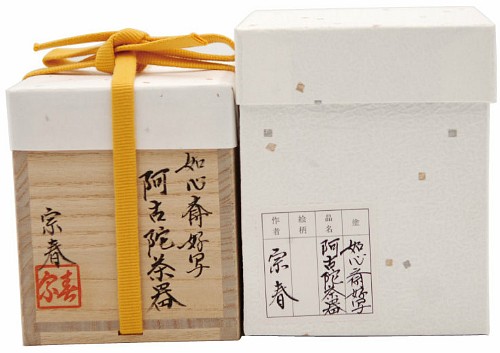 如心斎好写
阿古陀茶器
宗春
宗春
塗
如心斎好写
品名
阿古陀茶器
絵柄
作者
宗春